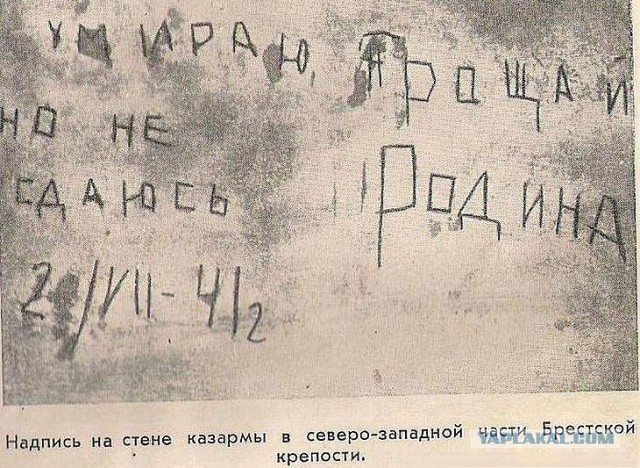 УМИРАЮ,
НО НЕ
СДАЮСЬ
20/VII-41г
ПРОЩАЙ
РОДИНА
Надпись на стене казармы в северо-западной части Брестской
крепости.
YAPLAKAL.COM